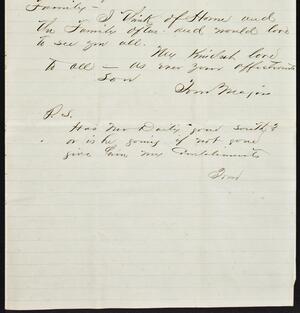 Family — I think of Home and
the Family often and would love
to see you all.
My kindest love
to all — As ever your affectionate
Son
Tom
P.S.
Has Mr Daily gone south?
or is he going if not gone
give him my Compliments
Tom